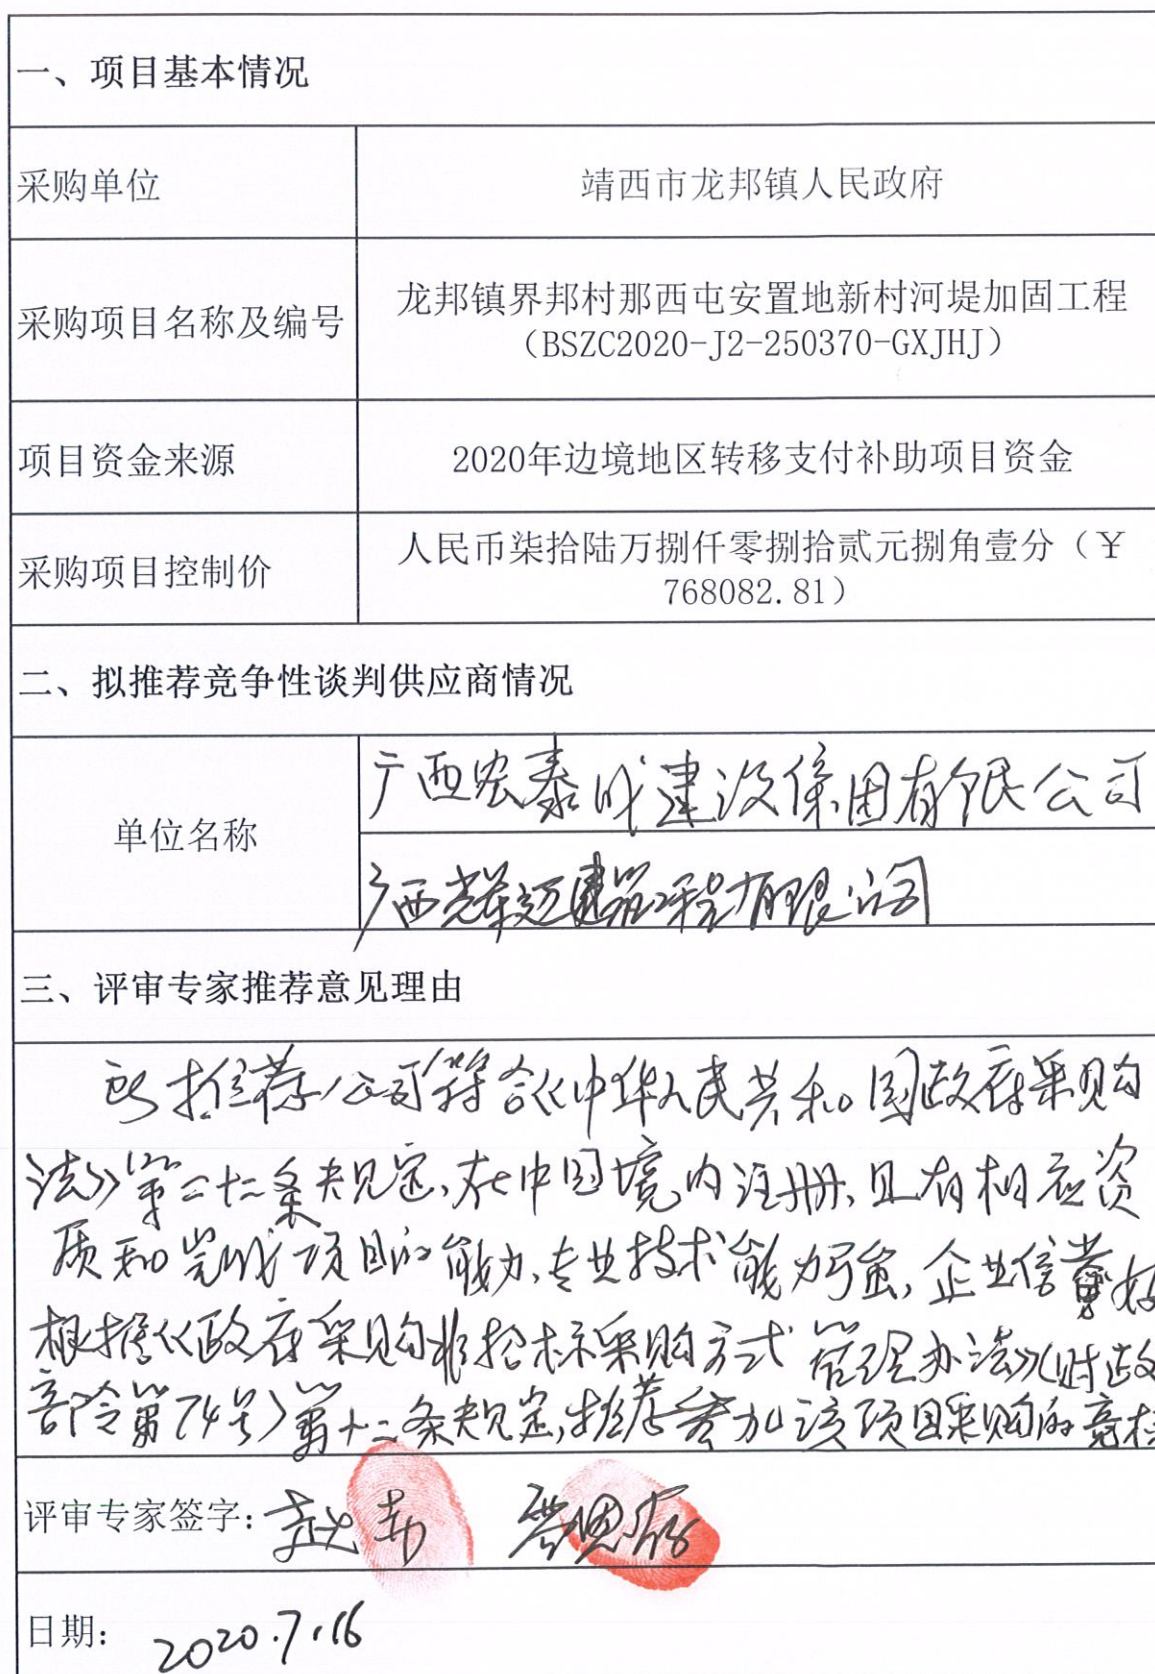 一、项目基本情况
采购单位
靖西市龙邦镇人民政府
采购项目名称及编号
龙邦镇界邦村那西屯安置地新村河堤加固工程
（BSZC2020-J2-250370-GXJHJ）
项目资金来源
2020年边境地区转移支付补助项目资金
采购项目控制价
人民币柒拾陆万捌仟零捌拾贰元捌角壹分（￥
768082.81）
二、拟推荐竞争性谈判供应商情况
单位名称
广西宏泰成建设集团有限公司
广西建筑工程有限公司
三、评审专家推荐意见理由
所推荐公司符合《中华人民共和国政府采购
法》第二十二条规定，在中国境内注册，且有相应资
质和完成项目的能力，专业技术能力，企业信誉好
根据《政府采购非招标采购方式管理办法》（财政
部令第74号）第十二条规定，推荐参加该项目采购的竞标
评审专家签字：
日期： 2020.7.16